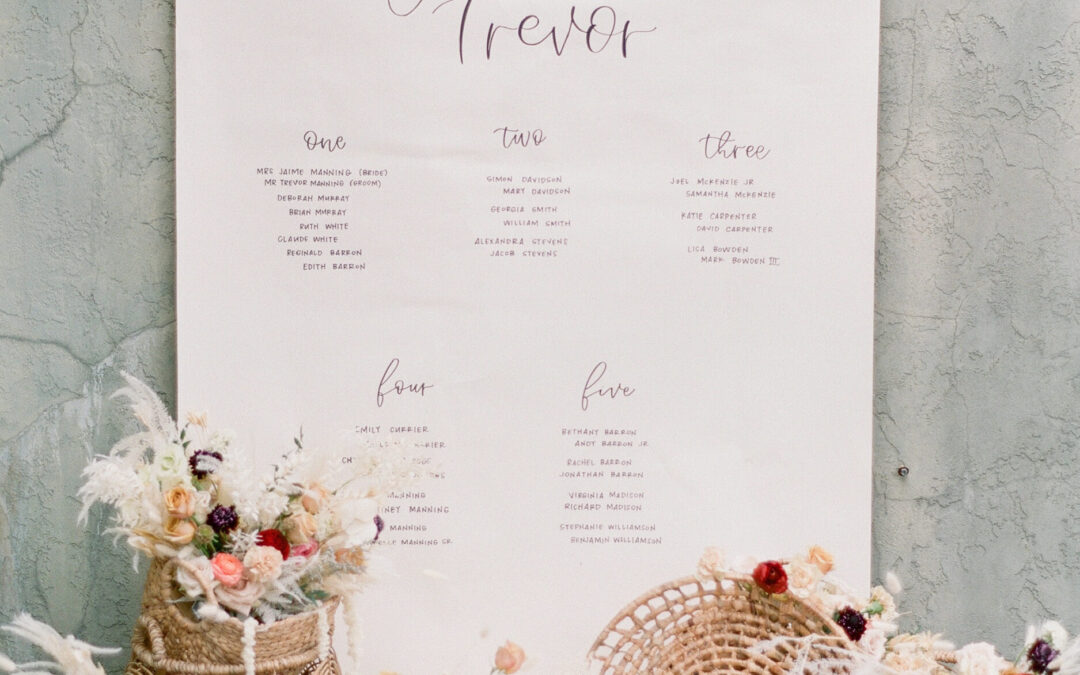 Trevor
one
MRS JAIME MANNING (BRIDE)
MR TREVOR MANNING (GROOM)
DEBORAH MURRAY
BRIAN MURRAY
RUTH WHITE
CLAUDE WHITE
REGINALD BARRON
EDITH BARRON
two
SIMON DAVIDSON
MARY DAVIDSON
GEORGIA SMITH
WILLIAM SMITH
ALEXANDRA STEVENS
JACOB STEVENS
three
JOEL MCKENZIE JR
SAMANTHA MCKENZIE
KATIE CARPENTER
DAVID CARPENTER
LISA BOWDEN
MARK BOWDEN III
four
EMILY CURRIER
MANNING
MANNING
MANNING
MANNING SR
five
BETHANY BARRON
ANDY BARRON JR
RACHEL BARRON
JONATHAN BARRON
VIRGINIA MADISON
RICHARD MADISON
STEPHANIE WILLIAMSON
BENJAMIN WILLIAMSON